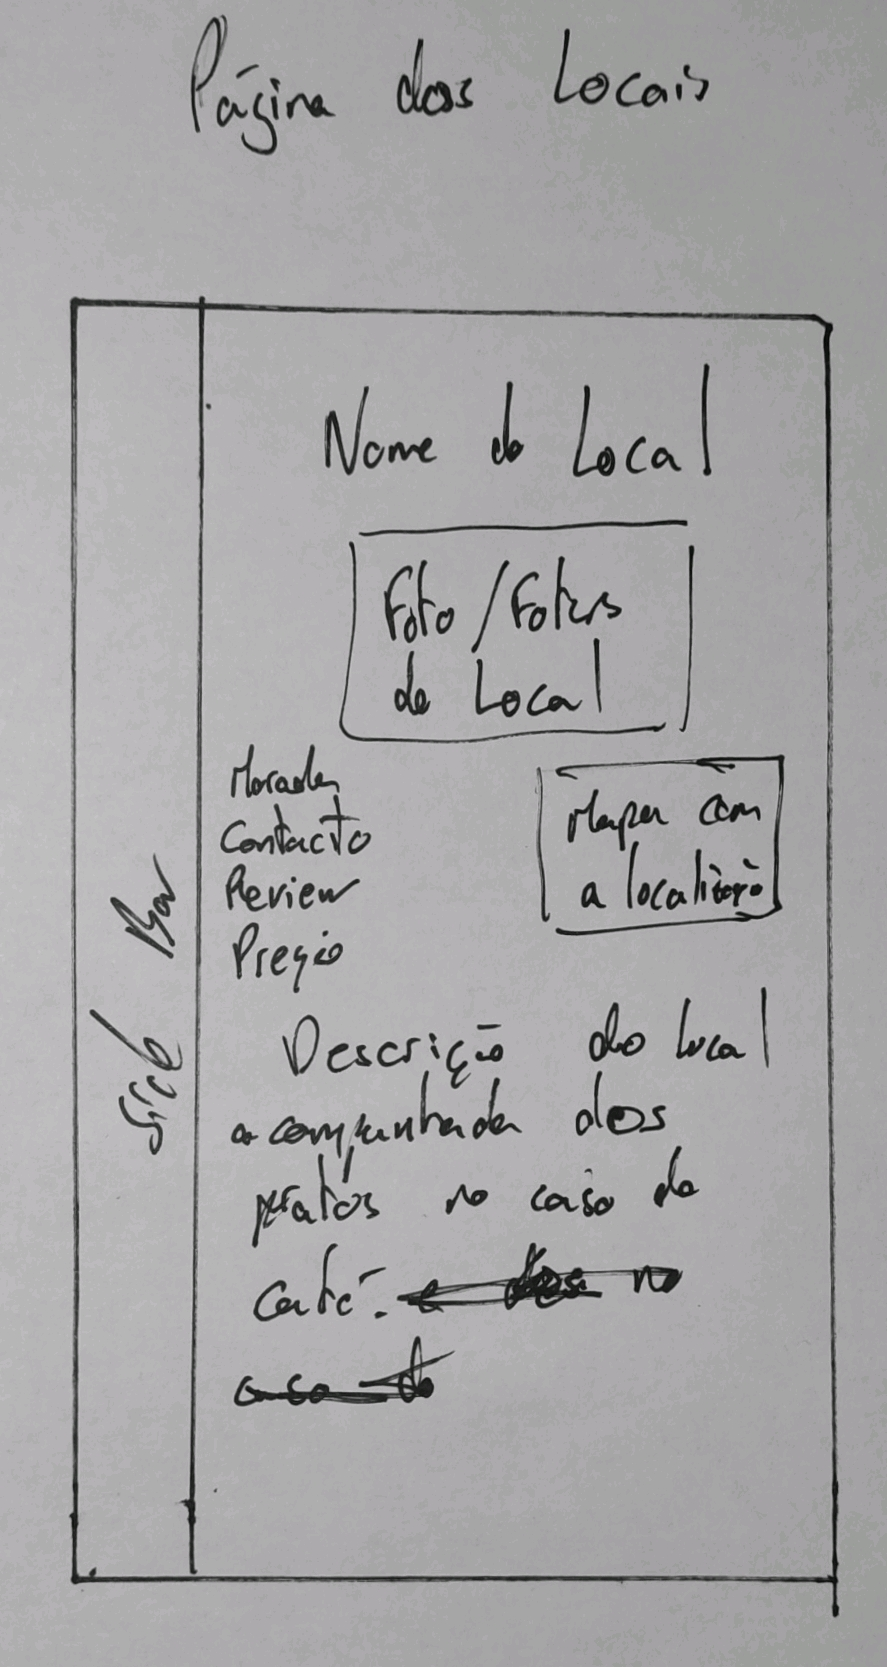 Página dos Locais
Nome do Local
Foto/Fotos
do Local
Morada
Contacto
Review
Preção
Mapa com
a localização
Side Bar
Descrição do local
acompanhada dos
pratos no caso do
café.